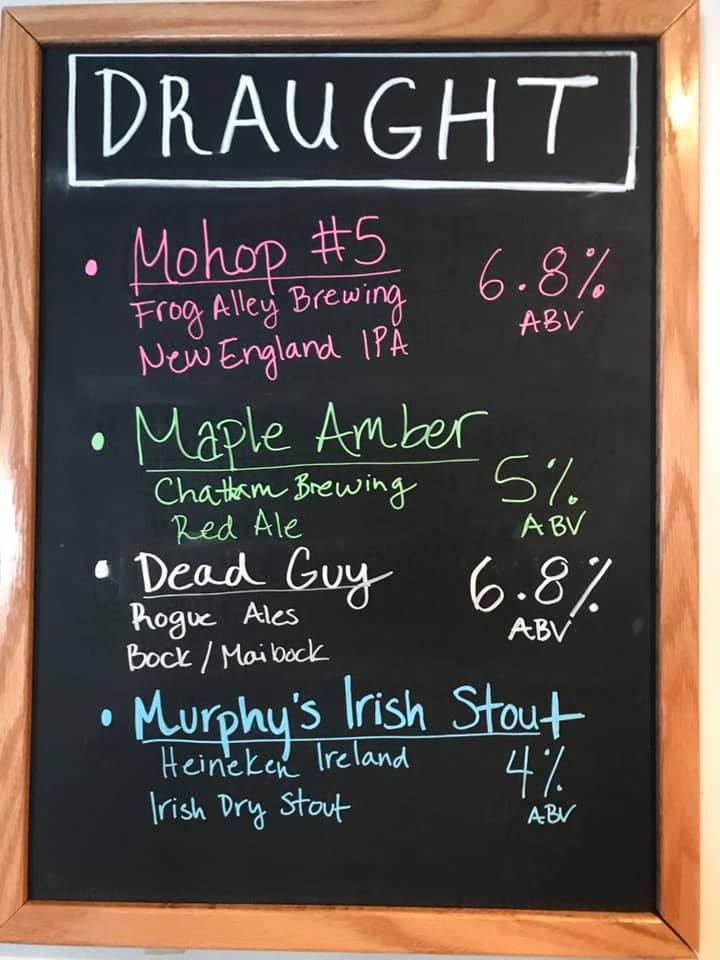 DRAUGHT
• Mohop #5
6.8%
Frog Alley Brewing
ABV
New England IPA
• Maple Amber
Chatham Brewing
5%
Red Ale
ABV
• Dead Guy
6.8%
Rogue Ales
ABV
Bock / Maibock
• Murphy's Irish Stout
Heineken Ireland
4%
Irish Dry Stout
ABV